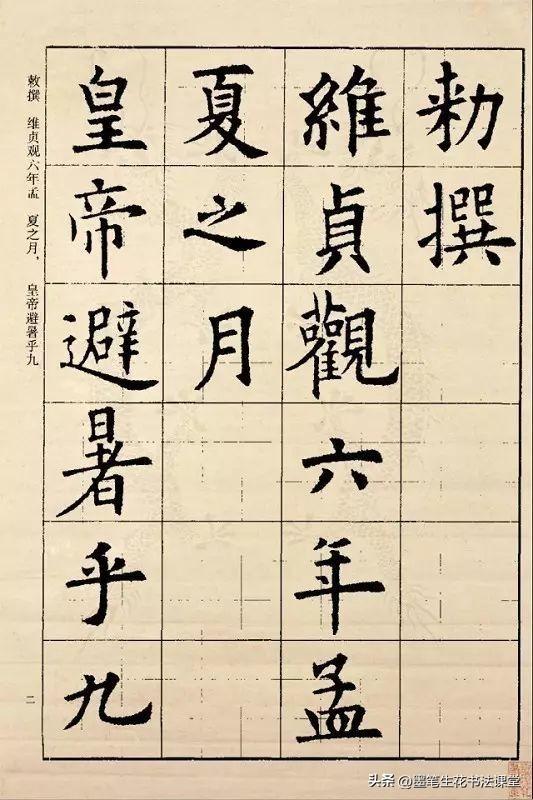 勅撰
維貞觀六年孟
夏之月
皇帝避暑乎九
敕撰　维贞观六年孟　夏之月，　皇帝避暑乎九
二
头条 @墨笔生花书法课堂